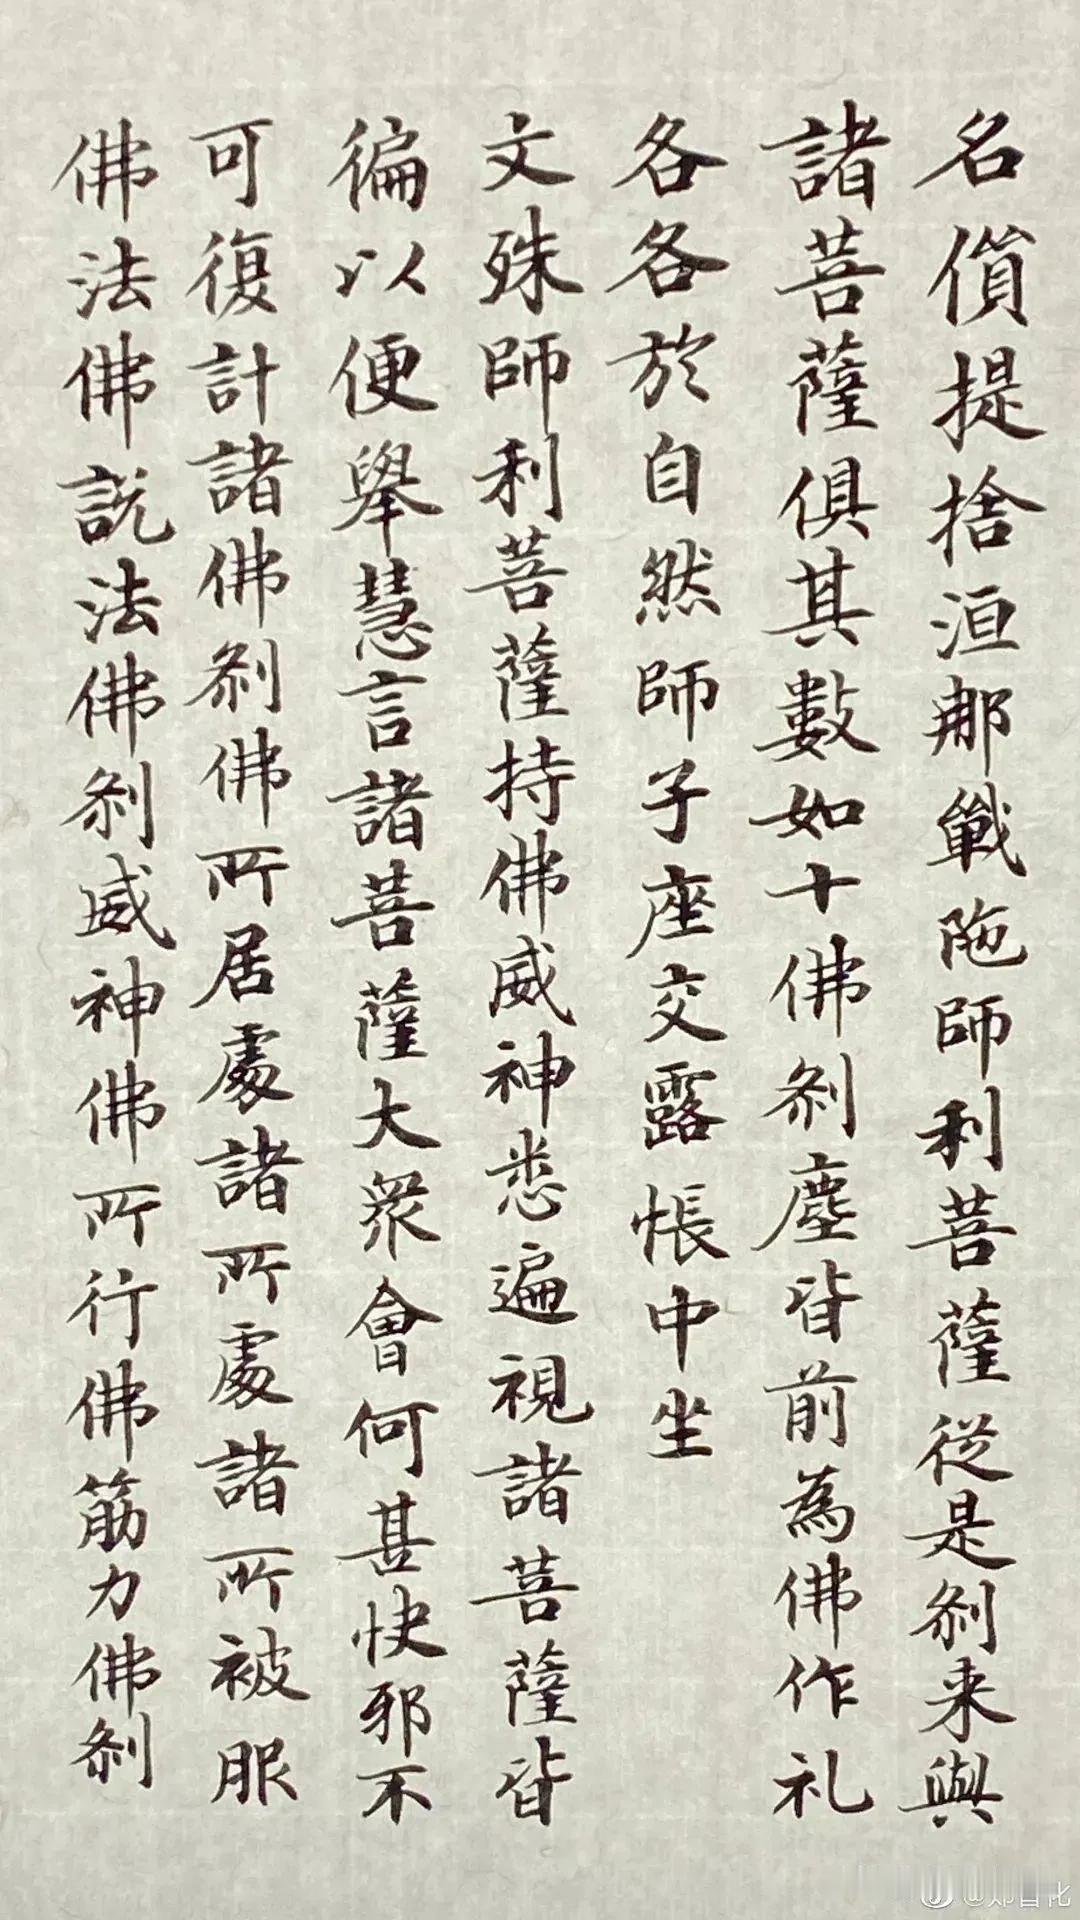 名償提捨洹那羼陁師利菩薩從是刹来與
諸菩薩俱其數如十佛刹塵皆前為佛作礼
各各於自然師子座交露帳中坐
文殊師利菩薩持佛威神悉遍視諸菩薩皆
徧以便舉慧言諸菩薩大衆會何甚快邪不
可復計諸佛刹佛所居處諸所處諸所被服
佛法佛説法佛刹威神佛所行佛筋力佛刹